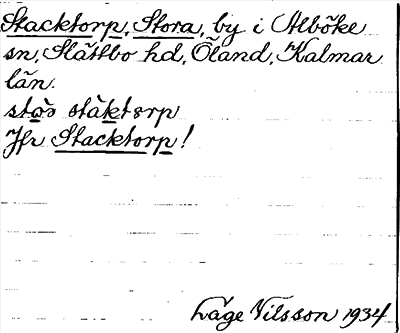 Stacktorp, Stora, by i Alböke
sn, Slättbo hd, Öland, Kalmar
län.
stäktorp
Jfr Stacktorp!
Låge Nilsson 1934